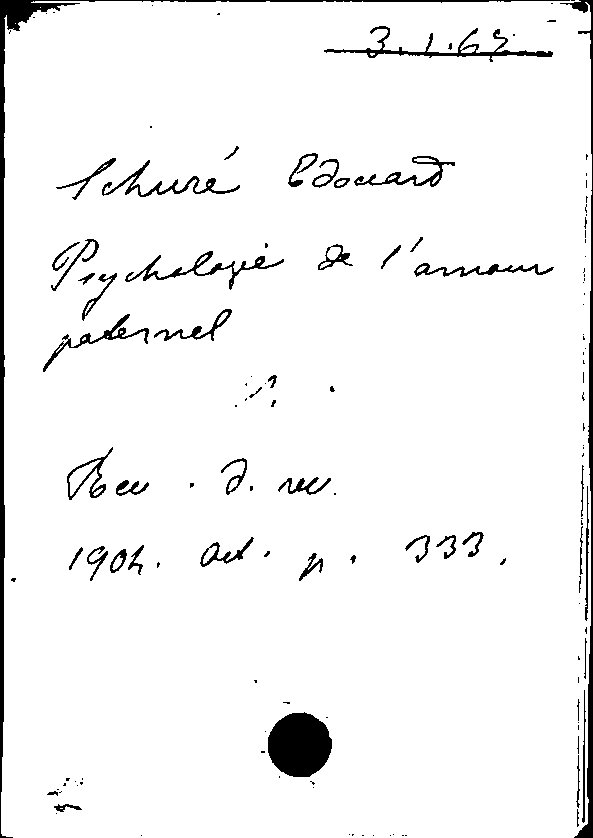 3.1.67
Schuré Edouard
Psychologie de l'amour
paternel
Rev. d. rev.
1904. Oct. p. 333.